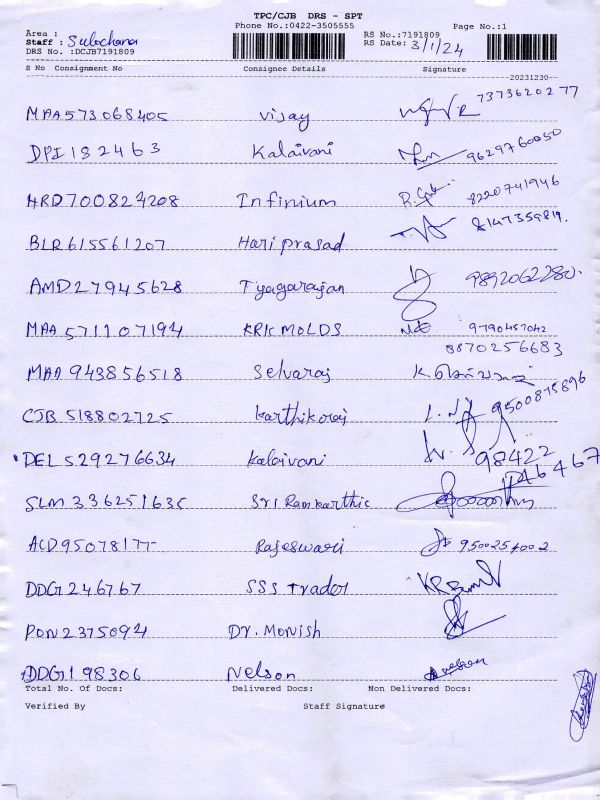 TPC/CJB DRS - SPT
Phone No.:0422-3505555 Page No.:1
Area :
Staff : Sulochana
DRS No. :DCJB7191809
RS No.:7191809
RS Date: 3/1/24
S No Consignment No Consignee Details Signature
20231230
MAA573068405 Vijay 7373620277
DPI182463 Kalaivani 9629760050
HRD700824208 Infinium 8220741946
BLR615561207 Hariprasad 8147359819.
AMD27945628 Tyagarajan 9892062280.
MAA571107194 KRIC MOLDS 9790457042
8870256683
MAA943856518 Selvaraj K. செல்வராஜ்
CJB518802725 Karthikraj 9500875896
DEL529276634 Kalaivani 98422
46467
SLM336251635 Sri Ramkarthic
ACD95078177 Rajeswari 9500254002
DDG1246767 SSS Trader
PON2375094 Dr. Monish
DDG1198306 Nelson Nelson
Total No. Of Docs: Delivered Docs: Non Delivered Docs:
Verified By Staff Signature